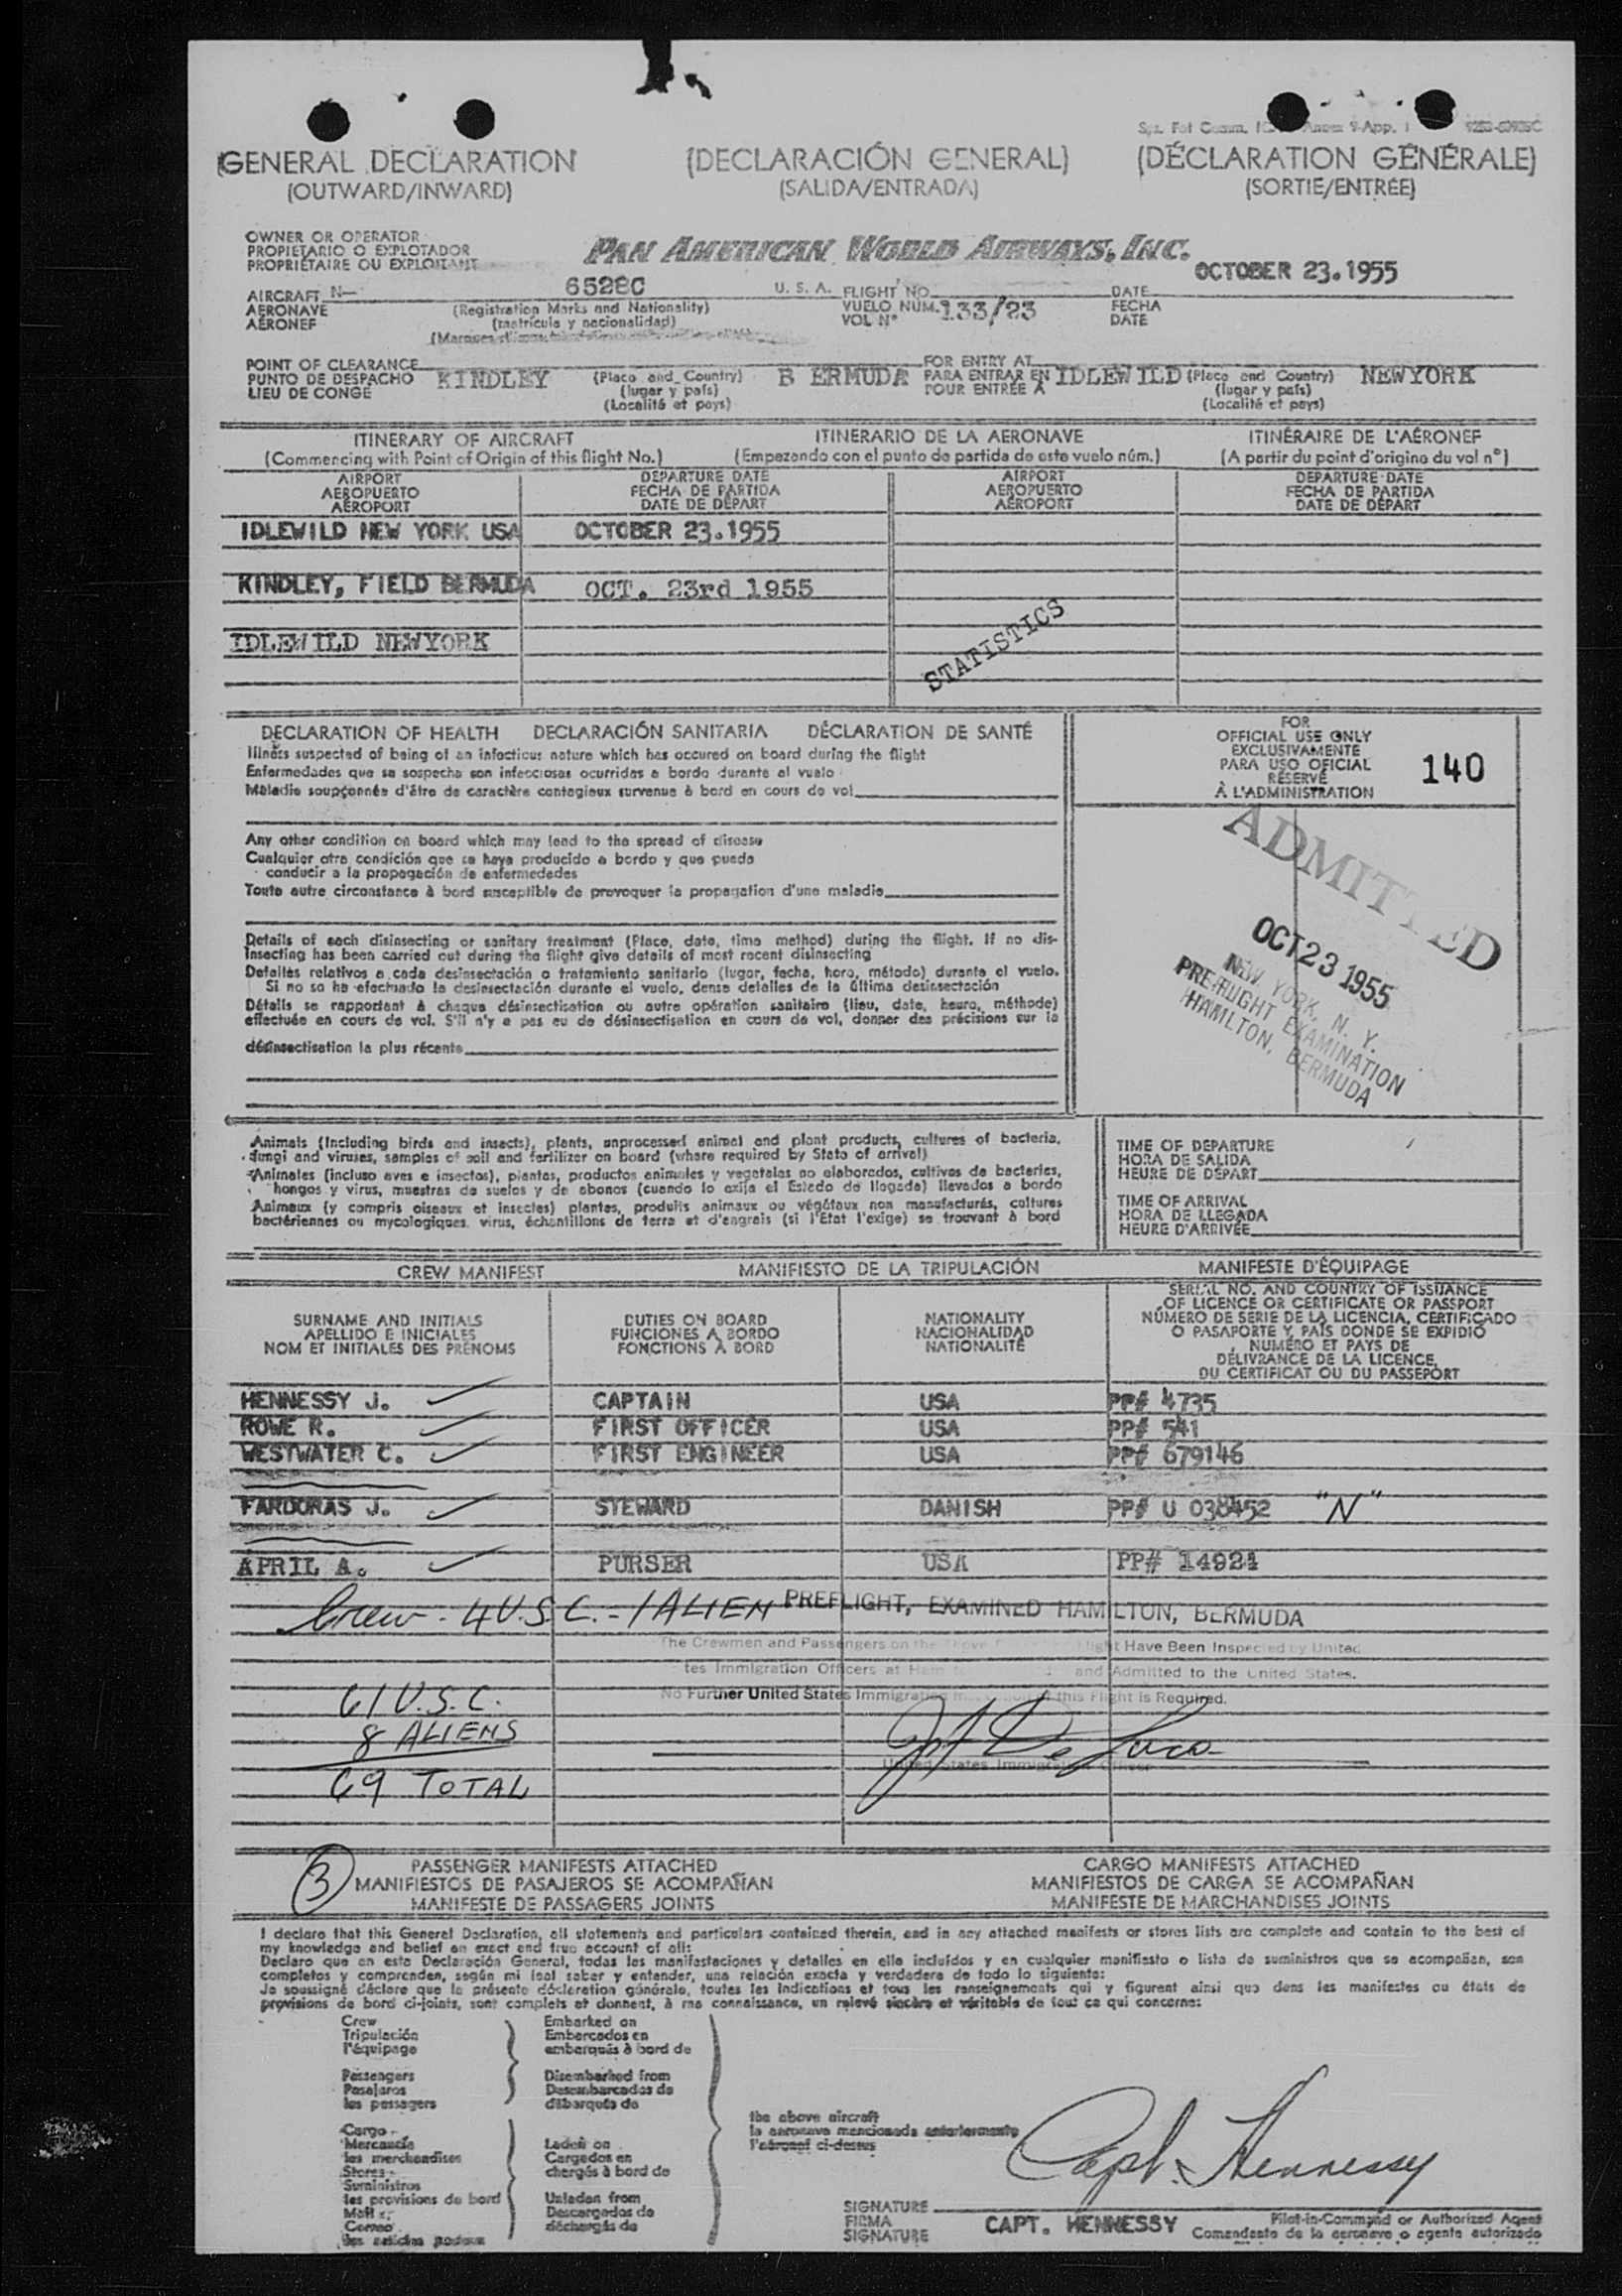 GENERAL DECLARATION (DECLARACIÓN GENERAL) (DÉCLARATION GÉNÉRALE)
(OUTWARD/INWARD) (SALIDA/ENTRADA) (SORTIE/ENTRÉE)
OWNER OR OPERATOR
PROPIETARIO O EXPLOTADOR
PROPRIÉTAIRE OU EXPLOITANT
PAN AMERICAN WORLD AIRWAYS, INC.
OCTOBER 23.1955
AIRCRAFT N- 6528C U. S. A. FLIGHT NO. DATE
AERONAVE (Registration Marks and Nationality) VUELO NÚM. 133/23 FECHA
AÉRONEF (matrícula y nacionalidad) VOL Nº DATE
POINT OF CLEARANCE FOR ENTRY AT
PUNTO DE DESPACHO KINDLEY (Place and Country) B ERMUDA PARA ENTRAR EN IDLEWILD (Place and Country) NEWYORK
LIEU DE CONGÉ (lugar y país) POUR ENTRÉE À (lugar y país)
(Localité et pays) (Localité et pays)
ITINERARY OF AIRCRAFT ITINERARIO DE LA AERONAVE ITINÉRAIRE DE L'AÉRONEF
(Commencing with Point of Origin of this flight No.) (Empezando con el punto de partida de este vuelo núm.) (A partir du point d'origine du vol nº)
AIRPORT DEPARTURE DATE AIRPORT DEPARTURE DATE
AEROPUERTO FECHA DE PARTIDA AEROPUERTO FECHA DE PARTIDA
AÉROPORT DATE DE DÉPART AÉROPORT DATE DE DÉPART
IDLEWILD NEW YORK USA OCTOBER 23.1955
KINDLEY, FIELD BERMUDA OCT. 23rd 1955
IDLEWILD NEWYORK
STATISTICS
DECLARATION OF HEALTH DECLARACIÓN SANITARIA DÉCLARATION DE SANTÉ
Illness suspected of being of an infectious nature which has occured on board during the flight
Enfermedades que se sospecha son infecciosas ocurridas a bordo durante el vuelo
Maladie soupçonnée d'être de caractère contagieux survenue à bord en cours de vol
Any other condition on board which may lead to the spread of disease
Cualquier otra condición que se haya producido a bordo y que pueda
conducir a la propagación de enfermedades
Toute autre circonstance à bord susceptible de provoquer la propagation d'une maladie
Details of each disinsecting or sanitary treatment (Place, date, time method) during the flight. If no dis-
insecting has been carried out during the flight give details of most recent disinsecting
Detalles relativos a cada desinsectación o tratamiento sanitario (lugar, fecha, hora, método) durante el vuelo.
Si no se ha efectuado la desinsectación durante el vuelo, dense detalles de la última desinsectación
Détails se rapportant à chaque désinsectisation ou autre opération sanitaire (lieu, date, heure, méthode)
effectuée en cours de vol. S'il n'y a pas eu de désinsectisation en cours de vol, donner des précisions sur la
désinsectisation la plus récente
FOR
OFFICIAL USE ONLY
EXCLUSIVAMENTE
PARA USO OFICIAL
RÉSERVÉ
À L'ADMINISTRATION
140
ADMITTED
OCT 23 1955
NEW YORK, N. Y.
PREFLIGHT EXAMINATION
HAMLTON, BERMUDA
Animals (Including birds and insects), plants, unprocessed animal and plant products, cultures of bacteria,
fungi and viruses, samples of soil and fertilizer on board (where required by State of arrival)
Animales (incluso aves e insectos), plantas, productos animales y vegetales no elaborados, cultivos de bacterias,
hongos y virus, muestras de suelos y de abonos (cuando lo exija el Estado de llegada) llevados a bordo
Animaux (y compris oiseaux et insectes) plantes, produits animaux ou végétaux non manufacturés, cultures
bactériennes ou mycologiques, virus, échantillons de terre et d'engrais (si l'État l'exige) se trouvant à bord
TIME OF DEPARTURE
HORA DE SALIDA
HEURE DE DÉPART
TIME OF ARRIVAL
HORA DE LLEGADA
HEURE D'ARRIVÉE
CREW MANIFEST MANIFIESTO DE LA TRIPULACIÓN MANIFESTE D'ÉQUIPAGE
SURNAME AND INITIALS
APELLIDO E INICIALES
NOM ET INITIALES DES PRÉNOMS
DUTIES ON BOARD
FUNCIONES A BORDO
FONCTIONS À BORD
NATIONALITY
NACIONALIDAD
NATIONALITÉ
SERIAL NO. AND COUNTRY OF ISSUANCE
OF LICENCE OR CERTIFICATE OR PASSPORT
NÚMERO DE SERIE DE LA LICENCIA, CERTIFICADO
O PASAPORTE Y PAÍS DONDE SE EXPIDIÓ
NUMÉRO ET PAYS DE
DÉLIVRANCE DE LA LICENCE,
DU CERTIFICAT OU DU PASSEPORT
HENNESSY J. CAPTAIN USA PP# 4735
ROWE R. FIRST OFFICER USA PP# 541
WESTWATER C. FIRST ENGINEER USA PP# 679146
FARDORAS J. STEWARD DANISH PP# U 038452 "N"
APRIL A. PURSER USA PP# 14921
Crew - 4 U.S.C. - 1 ALIEN PREFLIGHT, EXAMINED HAMILTON, BERMUDA
The Crewmen and Passengers on the Above Flight Have Been Inspected by United
tes Immigration Officers at and Admitted to the United States.
No Further United States Immigration this Flight is Required.
61 U.S.C.
8 ALIENS
69 TOTAL
United States Immigration Officer
3
PASSENGER MANIFESTS ATTACHED CARGO MANIFESTS ATTACHED
MANIFIESTOS DE PASAJEROS SE ACOMPAÑAN MANIFIESTOS DE CARGA SE ACOMPAÑAN
MANIFESTE DE PASSAGERS JOINTS MANIFESTE DE MARCHANDISES JOINTS
I declare that this General Declaration, all statements and particulars contained therein, and in any attached manifests or stores lists are complete and contain to the best of
my knowledge and belief an exact and true account of all:
Declaro que en esta Declaración General, todas las manifestaciones y detalles en ella incluídos y en cualquier manifiesto o lista de suministros que se acompañan, son
completos y comprenden, según mi leal saber y entender, una relación exacta y verdadera de todo lo siguiente:
Je soussigné déclare que la présente déclaration générale, toutes les indications et tous les renseignements qui y figurent ainsi que dans les manifestes ou états de
provisions de bord ci-joints, sont complets et donnent, à ma connaissance, un relevé sincère et véritable de tout ce qui concerne:
Crew
Tripulación
l'équipage
Passengers
Pasajeros
les passagers
Cargo
Mercancía
les merchandises
Stores
Suministros
les provisions de bord
Mail
Correo
Embarked on
Embarcados en
embarqués à bord de
Disembarked from
Desembarcados de
débarqués de
Laden on
Cargados en
chargés à bord de
Unladen from
Descargados de
déchargés de
the above aircraft
la aeronave mencionada anteriormente
l'aéronef ci-dessus
Capt. Hennessy
SIGNATURE
FIRMA
SIGNATURE
CAPT. HENNESSY
Pilot-in-Command or Authorized Agent
Comandante de la aeronave o agente autorizado